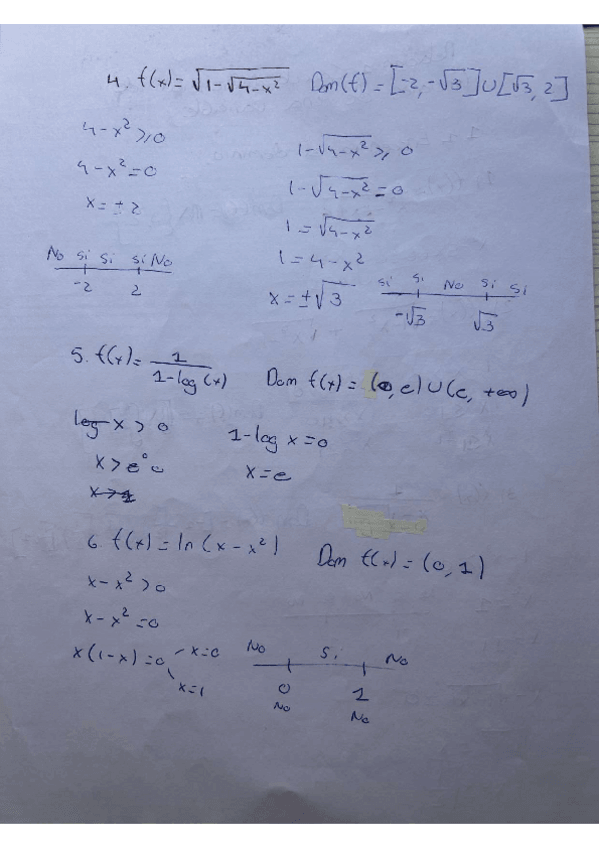 4. f(x) = √(1-√(4-x²)) Dom(f) = [-2, -√3] ∪ [√3, 2]
4-x² ≥ 0
4-x² = 0
x = ± 2
No si si si No
-2 2
1-√(4-x²) ≥ 0
1-√(4-x²) = 0
1 = √(4-x²)
1 = 4-x²
x = ±√3
si si No si si
-√3 √3
5. f(x) = 1/(1-log(x)) Dom f(x) = (0, e) ∪ (e, +∞)
log x > 0
x > e⁰ 0
x > 1
1-log x = 0
x = e
6. f(x) = ln(x-x²) Dom f(x) = (0, 1)
x-x² > 0
x-x² = 0
x(1-x) = 0 x=0
x=1
No si No
0 1
No No